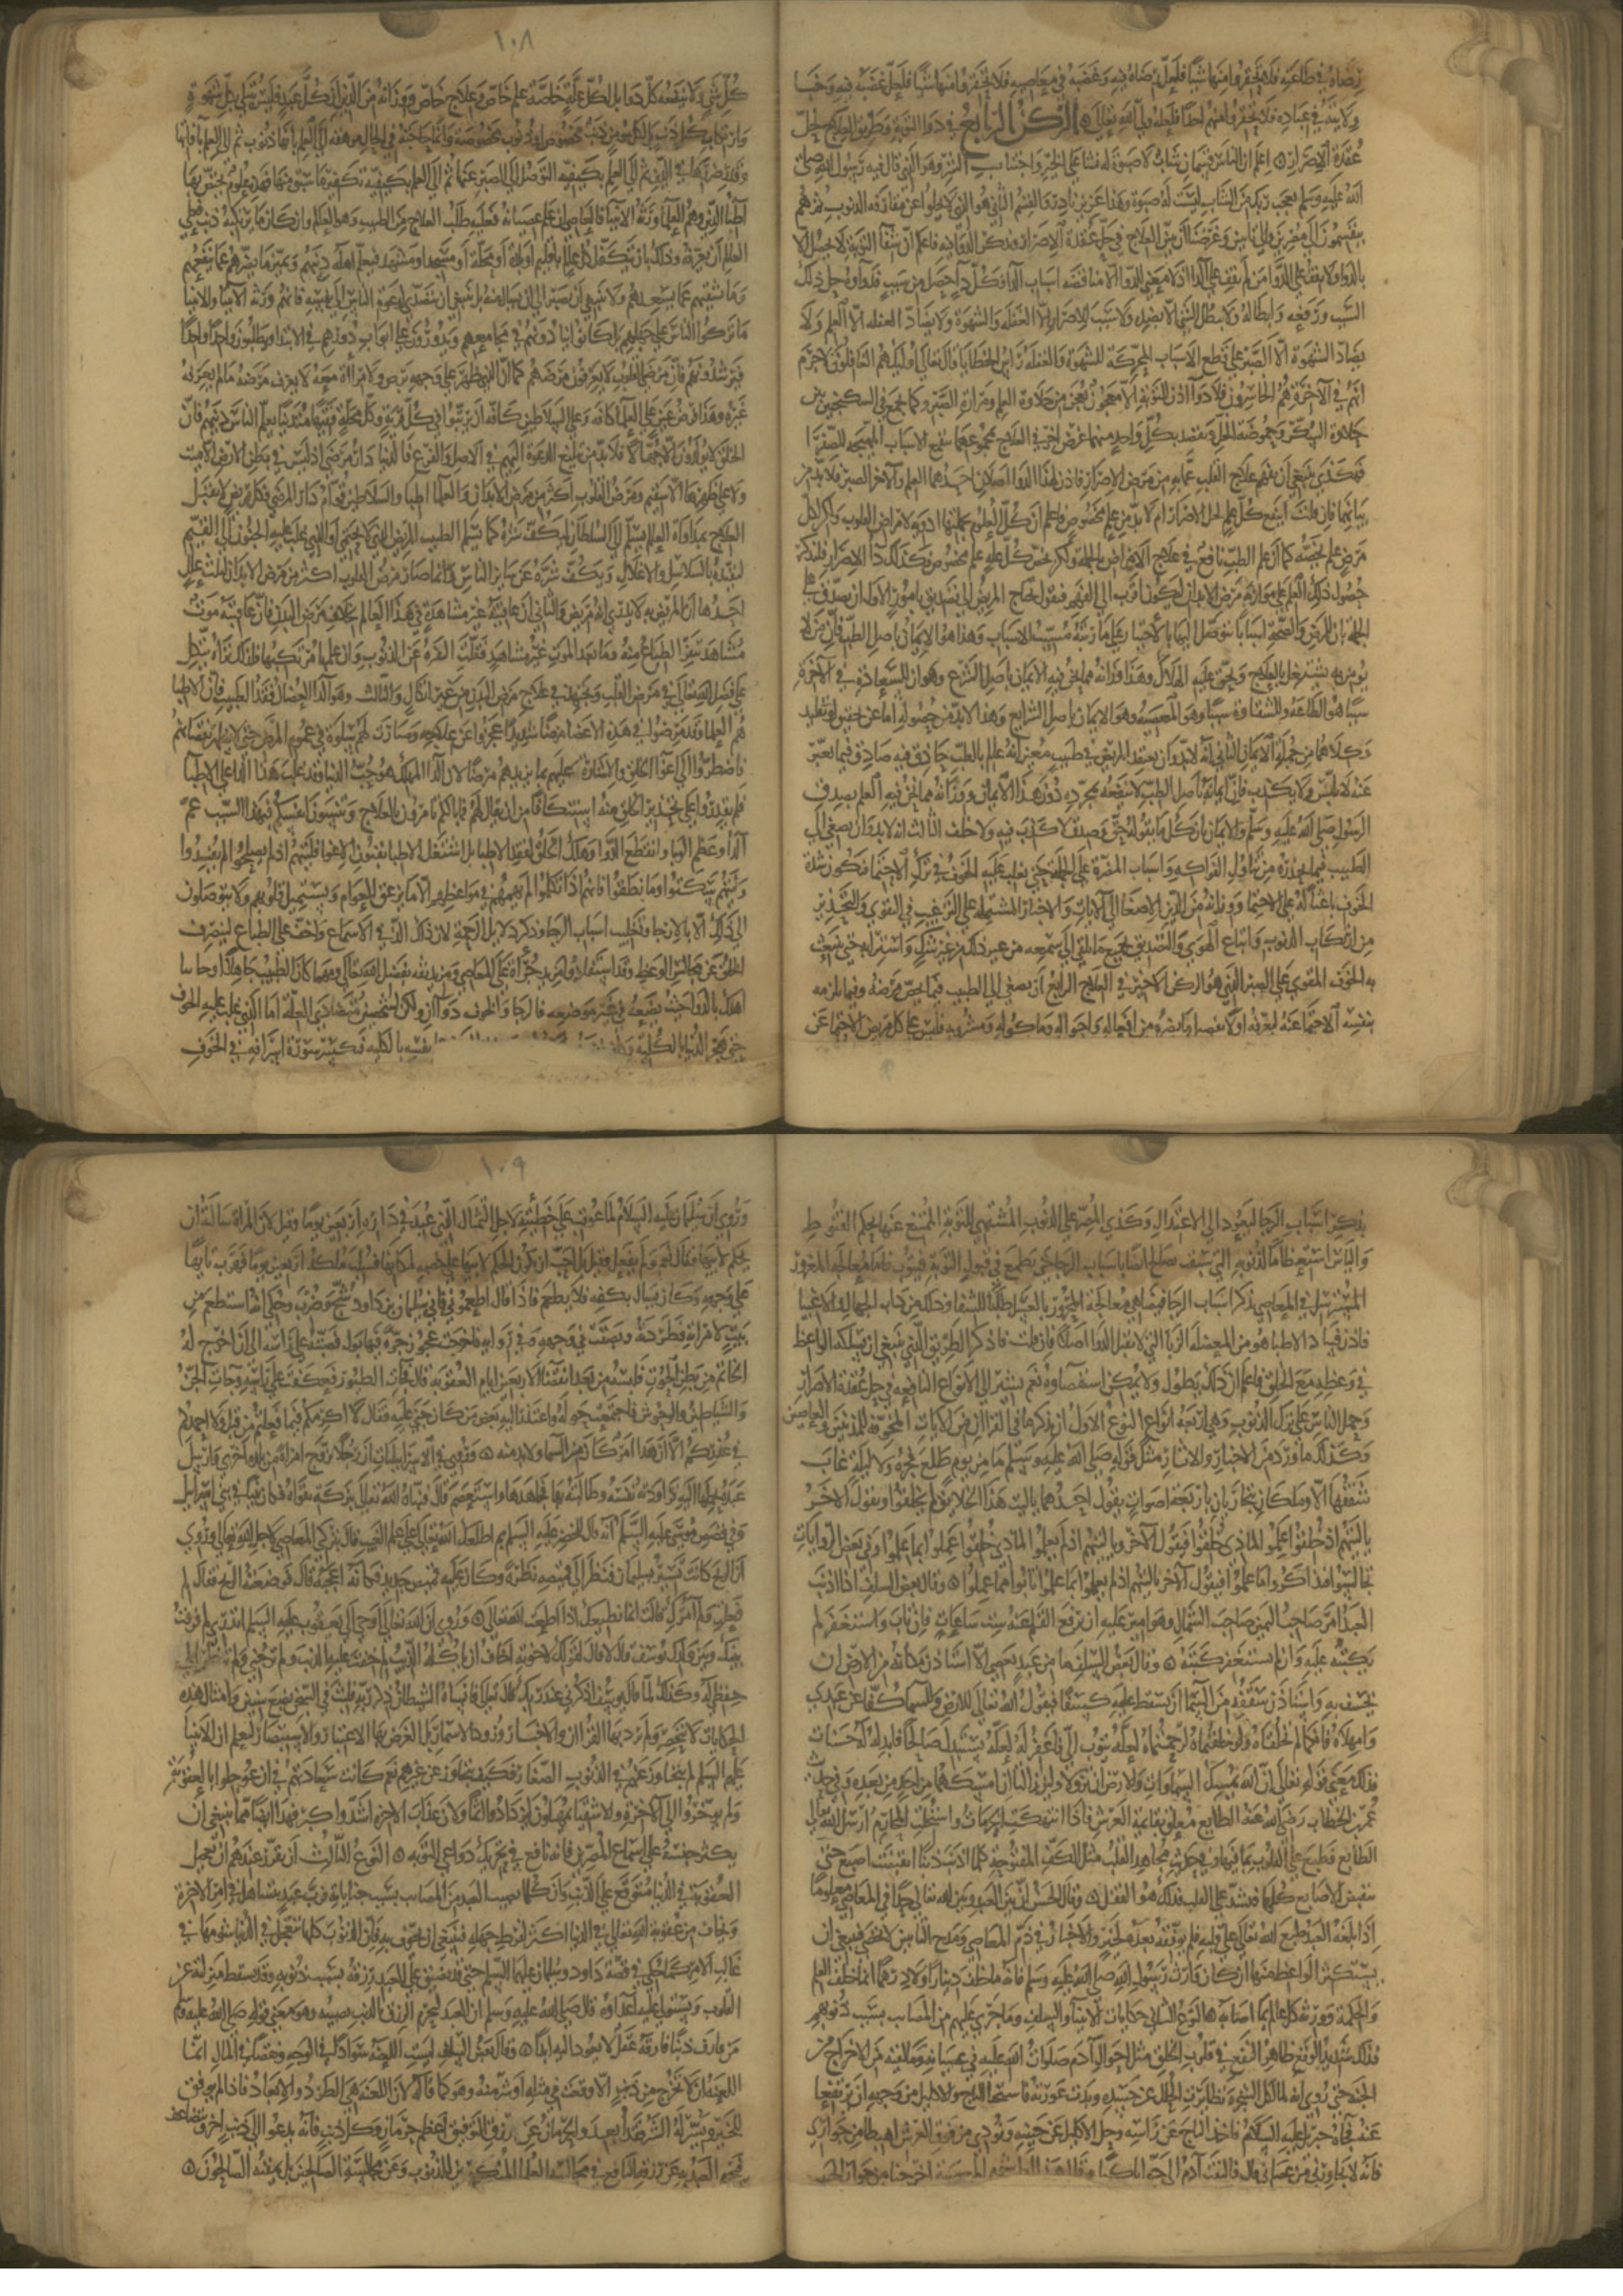 رضاه في طاعته فلا تحقروا منها شيئا فلعل رضاه فيه وغضبه في معاصيه فلا تحقروا منها شيئا فلعل غضبه فيه وخبا
ولايته في عباده فلا تحقروا منهم احدا فلعله ولي الله تعالى الركن الرابع في دوا التوبة وطريق العلاج لحل
عقدة الاصرار اعلم ان الناس قسمان شاب لا صبوة له نشا على الخير واجتناب الشر وهو الذي قال فيه رسول الله صلى
الله عليه وسلم يعجب ربك من الشاب ليست له صبوة وهذا عزيز نادر والقسم الثاني هو الذي لا يخلوا عن مقارفة الذنوب ثم هم
ينقسمون الى مصرين والى تايبين وغرضنا ان نبين العلاج في حل عقدة الاصرار ونذكر الدوا فيه فاعلم ان شفا التوبة لا يحصل الا
بالدوا ولا يقف على الدوا من لم يقف على الدا اذ لا معنى للدوا الا مناقضة اسباب الدا فكل دا حصل من سبب فدواوه حل ذلك
السبب ورفعه وابطاله ولا يبطل الشي الا بضده ولا سبب للاصرار الا الغفلة والشهوة ولا يضاد الغفلة الا العلم ولا
يضاد الشهوة الا الصبر على قطع الاسباب المحركة للشهوة والغفلة راس الخطايا قال تعالى واوليك هم الغافلون لا جرم
انهم في الاخرة هم الخاسرون فلا دوا اذن للتوبة الا معجون يعجن من حلاوة العلم ومرارة الصبر وكما يجمع في السكنجبين بين
حلاوة السكر وحموضة الخل ويقصد بكل واحد منهما غرض اخر في العلاج بمجموعهما فيقمع الاسباب المهيجة للصفرا
فهكذى ينبغي ان يفهم علاج القلب عما به من مرض الاصرار فاذن لهذا الدوا اصلان احدهما العلم والاخر الصبر فلا بد من
بيانهما فان قلت اينفع كل علم لحل الاصرار ام لا بد من علم مخصوص فاعلم ان كل العلوم بجملتها ادوية لامراض القلوب ولكن لكل
مرض علم يخصه كما ان علم الطب نافع في علاج الامراض بالجملة ولكن يخص كل علة علم مخصوص وكذلك دا الاصرار فلنذكر
خصوص ذلك العلم على موازنة مرض الابدان ليكون اقرب الى الفهم فنقول يحتاج المريض الى تصديق بامور الاول ان يصدق على
الجملة بان للمرض والصحة اسبابا يتوصل اليها بالاختيار على ما رتبه مسبب الاسباب وهذا هو الايمان باصل الطب فان من لا
يومن به لا يشتغل بالعلاج ويحق عليه الهلاك وهذا وزانه مما نحن فيه الايمان باصل الشرع وهو ان للسعادة في الاخرة
سببا هو الطاعة وللشقاوة سببا وهو المعصية وهو الايمان باصل الشرايع وهذا لا بد من حصوله اما عن تحقيق او تقليد
وكلاهما من جملة الايمان الثاني انه لا بد وان يعتقد المريض في طبيب معين انه عالم بالطب حاذق فيه صادق فيما يعبر
عنه لا يلبس ولا يكذب فان ايمانه باصل الطب لا ينفعه بمجرده دون هذا الايمان ووزانه مما نحن فيه العلم بصدق
الرسول صلى الله عليه وسلم والايمان بان كل ما يقوله حق وصدق لا كذب فيه ولا خلف الثالث انه لا بد وان يصغي الى
الطبيب فيما يحذره من تناول الفواكه واسباب المضرة على الجملة حتى يغلب عليه الخوف في ترك الاحتما فتكون شدة
الخوف باعثا له على الاحتما ووزانه من الدين الاصغا الى الايات والاخبار المشتملة على الترغيب في التقوى والتحذير
من ارتكاب الذنوب واتباع الهوى والتصديق بجميع ما يلقى الى سمعه من غير شك واسترابة حتى ينبعث
به الخوف المقوي على الصبر الذي هو الركن الاخير في العلاج الرابع ان يصغي الى الطبيب فيما يخص مرضه وفيما يلزمه
بنفسه الاحتما عنه ليعرفه اولا تفصيل ما يضره من افعاله واحواله وماكوله ومشروبه فليس على كل مريض الاحتما عن
١٠٨
كل شي ولا ينفعه كل دوا بل لكل علة خاصة علم خاص وعلاج خاص ووزانه من الدين ان كل عبد فليس يبتلى بكل شهوة
وارتكاب كل ذنب بل لكل مومن ذنب مخصوص او ذنوب مخصوصة وانما حاجته في الحال مرهقة الى العلم بانها ذنوب ثم الى العلم بافاتها
وقدر ضررها في الدين ثم الى العلم بكيفية التوصل الى الصبر عنها ثم الى العلم بكيفية تكفير ما سبق منها فهذه علوم يختص بها
اطبا الدين وهم العلما ورثة الانبيا فالعاصي ان علم عصيانه فعليه طلب العلاج من الطبيب وهو العالم وان كان ما يرتكبه ذنب فعلى
العالم ان يعرفه وذلك بان يتكفل كل عالم باقليم او بلدة او محلة او مسجد او مشهد فيعلم اهله دينهم ويميز ما يضرهم عما ينفعهم
وما يشقيهم عما يسعدهم ولا ينبغي ان يصبر الى ان يسال عنه بل ينبغي ان يتصدى لدعوة الناس الى نفسه فانهم ورثة الانبيا والانبيا
ما تركوا الناس على جهلهم بل كانوا ينادونهم في مجامعهم ويدورون على ابواب دورهم في الابتدا ويطلبون واحدا واحدا
فيرشدونهم فان مرضى القلوب لا يعرفون مرضهم كما ان الذي ظهر على وجهه برص ولا مراة معه لا يعرف مرضه ما لم يعرفه
غيره وهذا فرض عين على العلما كافة وعلى السلاطين كافة ان يرتبوا في كل قرية وكل محلة فقيها متدينا يعلم الناس دينهم فان
الخلق لا يولدون الا جهالا فلا بد من تبليغ الدعوة اليهم في الاصل والفرع فالدنيا دار مرضى اذ ليس في بطن الارض الا ميت
ولا على ظهرها الا سقيم ومرض القلوب اكثر من مرض الابدان والعلما اطبا والسلاطين قوام دار المرضى فكل مريض لا يقبل
العلاج بمداواة العالم يسلم الى السلطان ليكف شره كما يسلم الطبيب المريض الذي لا يحتمي او الذي غلب عليه الجنون الى القيم
ليقيده بالسلاسل والاغلال ويكف شره عن ساير الناس وانما صار مرض القلوب اكثر من مرض الابدان لثلث علل
احدها ان المريض به لا يدري انه مريض والثاني ان عاقبته غير مشاهدة في هذا العالم بخلاف مرض البدن فان عاقبته موت
مشاهد تنفر الطباع منه وما بعد الموت غير مشاهد فقلت النفرة عن الذنوب وان علمها مرتكبها فلذلك تراه يتكل
على فضل الله تعالى في مرض القلب ويجتهد في علاج مرض البدن من غير اتكال والثالث وهو الدا العضال فقد الطبيب فان الاطبا
هم العلما وقد مرضوا في هذه الاعصار مرضا شديدا عجزوا عن علاجه وصارت لهم سلوة في عموم المرض حتى لا يظهر نقصانهم
فاضطروا الى اغوا الخلق والاشارة عليهم بما يزيدهم مرضا لان الدا المهلك هو حب الدنيا وقد غلب هذا الدا على الاطبا
فلم يقدروا على تحذير الخلق منه استنكافا من ان يقال لهم فما بالكم تامرون بالعلاج وتنسون انفسكم فبهذا السبب عم
الدا وعظم الوبا وانقطع الدوا وهلك الخلق لفقد الاطبا بل اشتغل الاطبا بفنون الاغوا فليتهم اذ لم يصلحوا لم يفسدوا
وليتهم سكتوا وما نطقوا فانهم اذا تكلموا لم يهمهم في مواعظهم الا ما يرغب العوام ويستميل قلوبهم ولا يتوصلون
الى ذلك الا بالارجا وتغليب اسباب الرجا وذكر دلايل الرحمة لان ذلك الذ في الاسماع واخف على الطباع لينصرف
الخلق عن مجالس الوعظ وقد استفادوا مزيد جراة على المعاصي ومزيد ثقة بفضل الله تعالى ومهما كان الطبيب جاهلا او خاينا
اهلك بالدوا حيث يضعه في غير موضعه فالرجا والخوف دواان ولكن لشخصين متضادي العلة اما الذي غلب عليه الخوف
حتى هجر الدنيا بالكلية نفسه بالكلية فتكسر سورة اسرافه في الخوف
بذكر اسباب الرجا ليعود الى الاعتدال وكذى المصر على الذنوب المشتهي للتوبة الممتنع عنها بحكم القنوط
والياس استعظاما لذنوبه التي سبقت يصلح ايضا باسباب الرجا حتى يطمع في قبول التوبة فيتوب فاما معالجة المغرور
المسترسل في المعاصي بذكر اسباب الرجا فيضاهي معالجة المحرور بالعسل طلبا للشفا وذلك من داب الجهال والاغبيا
فاذن فساد الاطبا هو من المعضلة الزبا التي لا تقبل الدوا اصلا فان قلت فاذكر الطريق الذي ينبغي ان يسلكه الواعظ
في وعظه مع الخلق فاعلم ان ذلك يطول ولا يمكن استقصاوه نعم نشير الى الانواع النافعة في حل عقدة الاصرار
وحمل الناس على ترك الذنوب وهي اربعة انواع النوع الاول ان يذكر ما في القران من الايات المخوفة للمذنبين والعاصين
وكذلك ما ورد من الاخبار والاثار مثل قوله صلى الله عليه وسلم ما من يوم طلع فجره ولا ليلة غاب
شفقها الا وملكان يتجاوبان باربعة اصوات يقول احدهما يا ليت هذا الخلق لم يخلقوا ويقول الاخر
يا ليتهم اذ خلقوا علموا لماذى خلقوا فيقول الاخر ويا ليتهم اذ لم يعلموا لماذى خلقوا عملوا بما علموا وفي بعض الروايات
تجالسوا فتذاكروا ما علموا فيقول الاخر يا ليتهم اذ لم يعملوا بما علموا تابوا مما عملوا وقال بعض السلف اذا اذنب
العبد امر صاحب اليمين صاحب الشمال وهو امير عليه ان يرفع القلم عنه ست ساعات فان تاب واستغفر لم
يكتبه عليه وان لم يستغفر كتبه وقال بعض السلف ما من عبد يعصي الا استاذن مكانه من الارض ان
تخسف به واستاذن سقفه من السما ان يسقط عليه كسفا فيقول الله تعالى للارض والسما كفا عن عبدي
وامهلاه فانكما لم تخلقاه ولو خلقتماه لرحمتماه لعله يتوب الي فاغفر له لعله يستبدل صالحا فابدله له حسنات
فذلك معنى قوله تعالى ان الله يمسك السموات والارض ان تزولا ولين زالتا ان امسكهما من احد من بعده وفي حديث
عمر بن الخطاب رضي الله عنه الطابع معلق بقايمة العرش فاذا انتهكت الحرمات واستحلت المحارم ارسل الله تعالى
الطابع فطبع على القلوب بما فيها وفي حديث مجاهد القلب مثل الكف المفتوحة كلما اذنب ذنبا انقبضت اصبع حتى
تنقبض الاصابع كلها فيشد على القلب فذلك هو القفل وقال الحسن ان بين العبد وبين الله تعالى حدا في المعاصي معلوما
اذا بلغه العبد طبع الله تعالى على قلبه فلم يوفقه بعده لخير والاخبار في ذم المعاصي ومدح التايبين لا تحصى فينبغي ان
يستكثر الواعظ منها ان كان وارث رسول الله صلى الله عليه وسلم فانه ما خلف دينارا ولا درهما انما خلف العلم
والحكمة وورثه كل عالم بما اصابه النوع الثاني حكايات الانبيا والسلف وما جرى عليهم من المصايب بسبب ذنوبهم
فذلك شديد الوقع ظاهر النفع في قلوب الخلق مثل احوال آدم صلوات الله عليه في عصيانه وما لقيه من الاخراج من
الجنة حتى روي انه لما اكل الشجرة تطايرت الحلل عن جسده وبدت عورته فاستحيا التاج والاكليل من وجهه ان يرتفعا
عنه فجاه جبريل عليه السلام فاخذ التاج عن راسه وحل الاكليل عن جبينه ونودي من فوق العرش اهبطا من جواري
فانه لا يجاورني من عصاني قال فالتفت آدم الى حوا باكيا وقال هذا اول شوم المعصية اخرجنا من جوار الحبيب
١٠٩
وروي ان سليمن عليه السلام لما عوقب على خطيئته لاجل التمثال الذي عبد في داره اربعين يوما وقيل لان المراة سالته ان
يحكم لابيها فقال نعم ولم يفعل وقيل بل احب ان يكون الحكم لابيها على خصمه لمكانها فسلب ملكه اربعين يوما فهرب تايها
على وجهه وكان يسال بكفه فلا يطعم فاذا قال اطعموني فاني سليمان بن داود شج وضرب وحكي انه استطعم من
بيت لامراته فطردته وبصقت في وجهه وفي رواية فاخرجت عجوز جرة فيها بول فصبته على راسه الى ان اخرج له
الخاتم من بطن الحوت فلبسه من بعد انقضا الاربعين ايام العقوبة قال فجات الطيور فعكفت على راسه وجات الجن
والشياطين والوحوش فاجتمعت حوله واعتذر اليه بعض من كان جنى عليه فقال لا الومكم فيما فعلتم من قبل ولا احمدكم
في عذركم الان ان هذا امر كان من السما ولا بد منه وروي في الاسراييليات ان رجلا تزوج امراة من بلدة اخرى فارسل
عبده ليحملها اليه فراودته نفسه وطالبته بها فجاهدها واستعصم قال فنباه الله تعالى ببركة تقواه فكان نبيا في بني اسراييل
وفي قصص موسى عليه السلم انه قال للخضر عليه السلم بم اطلعك الله تعالى على علم الغيب قال بتركي المعاصي لاجل الله تعالى وروي
ان الريح كانت تسير بسليمان فنظر الى قميصه نظرة وكان عليه قميص جديد فكانه اعجبه قال فوضعته الريح فقال لم
فعلت ولم آمرك قالت انما نطيعك اذا اطعت الله تعالى وروي ان الله تعالى اوحى الى يعقوب عليه السلم اتدري لم فرقت
بينك وبين ولدك يوسف قال لا قال لقولك لاخوته اخاف ان ياكله الذيب لم خفت عليه الذيب ولم ترجني ولم نظرت الى
حفظي له وكذلك لما قال يوسف اذكرني عند ربك قال تعالى فانساه الشيطان ذكر ربه فلبث في السجن بضع سنين وامثال هذه
الحكايات لا تنحصر ولم يرد بها القران والاخبار ورود الاسمار بل الغرض بها الاعتبار والاستبصار ليعلم ان الانبيا
عليهم السلم لم يتجاوز عنهم في الذنوب الصغار فكيف يتجاوز عن غيرهم نعم كانت سعادتهم في ان عوجلوا بالعقوبة
ولم يوخروا الى الاخرة والاشقيا يمهلون ليزدادوا اثما ولان عذاب الاخرة اشد واكبر فهذا ايضا مما ينبغي ان
يكثر جنسه على اسماع المصرين فانه نافع في تحريك دواعي التوبة النوع الثالث ان يقرر عندهم ان تعجيل
العقوبة في الدنيا متوقع على الذنب وان كل ما يصيب العبد من المصايب بسبب جناياته فرب عبد يتساهل في امر الاخرة
ويخاف من عقوبة الله تعالى في الدنيا اكثر لفرط جهله فينبغي ان يخوف به فان الذنوب كلها يتعجل في الدنيا شومها في
غالب الامر كما حكي في قصة داود وسليمان عليهما السلم حتى قد يضيق على العبد رزقه بسبب ذنوبه وقد تسقط منزلته عن
القلوب ويستولي عليه اعداوه قال صلى الله عليه وسلم ان العبد ليحرم الرزق بالذنب يصيبه وهو معنى قوله صلى الله عليه وسلم
من قارف ذنبا فارقه عقل لا يعود اليه ابدا وقال بعض السلف ليست اللعنة سوادا في الوجه ونقصا في المال انما
اللعنة ان لا تخرج من ذنب الا وقعت في مثله او شر منه وهو كما قال لان اللعنة هي الطرد والابعاد فاذا لم يوفق
للخير ويسر له الشر فقد ابعد والحرمان عن رزق التوفيق اعظم حرمان وكل ذنب فانه يدعو الى ذنب اخر ويتضاعف
فيحرم العبد به عن رزقه النافع في مجالسة العلما المنكرين للذنوب وعن مجالسة الصالحين بل يمقته الصالحون